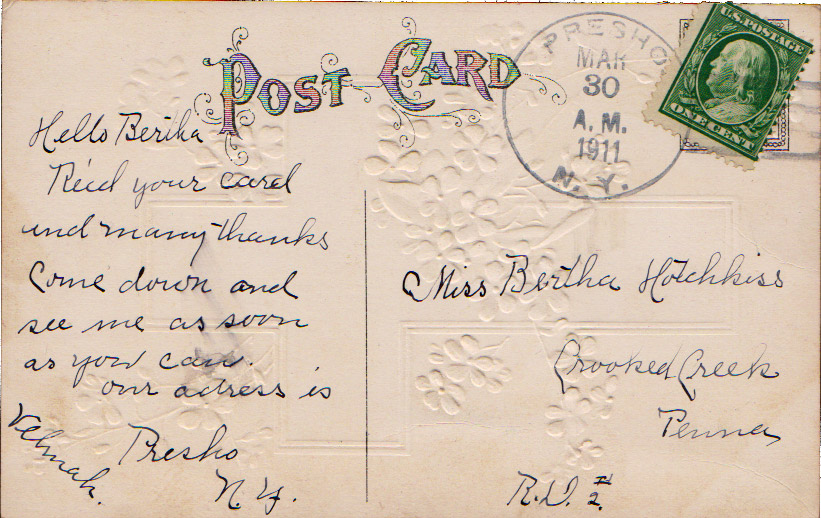 POST CARD
PRESHO
MAR
30
A. M.
1911
N. Y.
U.S. POSTAGE
ONE CENT
Hello Bertha
Rec'd your card
and many thanks
Come down and
see me as soon
as you can.
our adress is
Presho
N.Y.
Velmah.
Miss Bertha Hotchkiss
Crooked Creek
Penna
R.D. # 2.